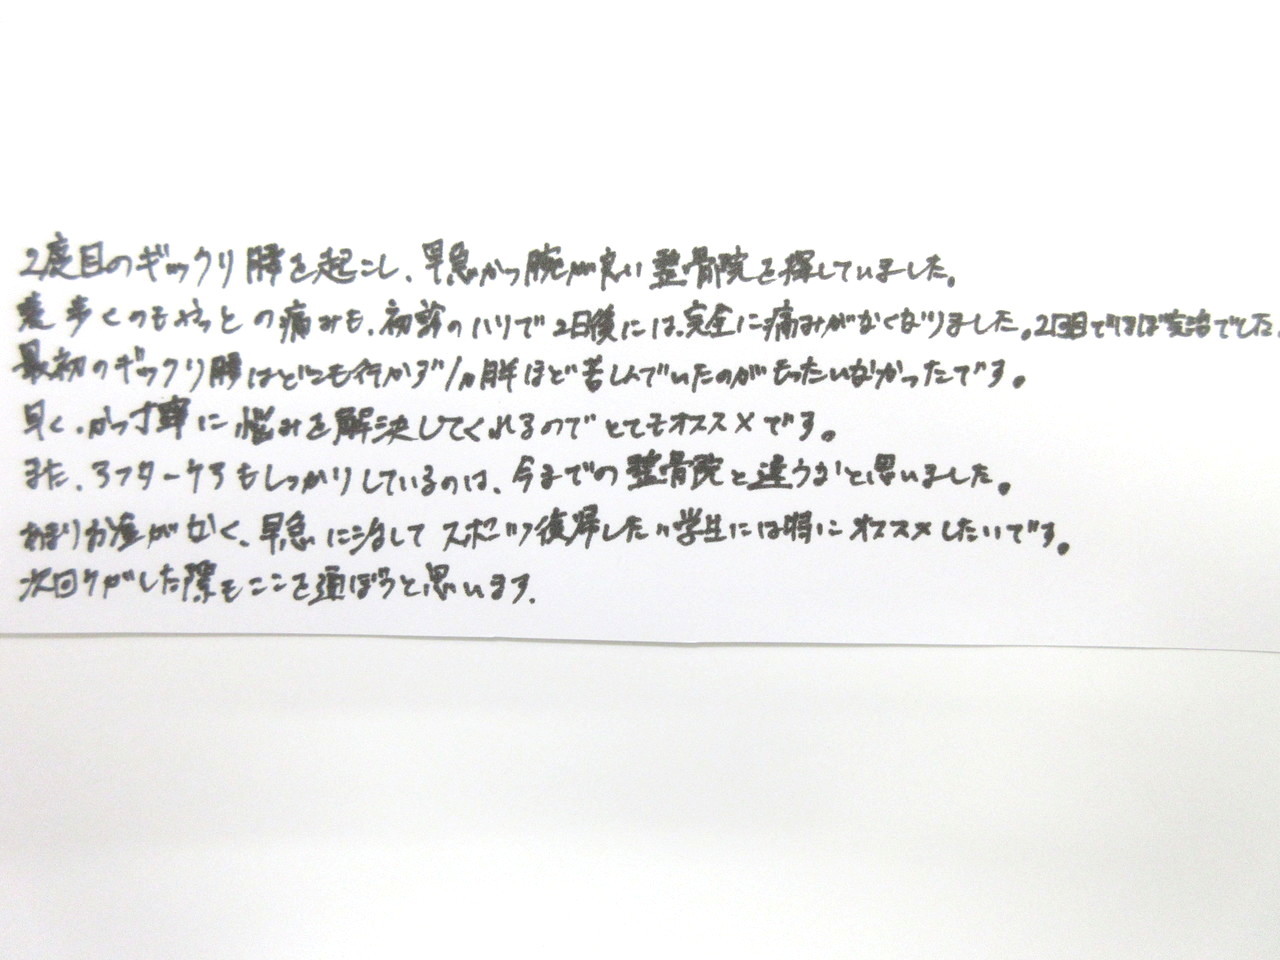 2度目のギックリ腰を起こし、早急かつ腕が良い整骨院を探していました。
歩くのもやっとの痛みも、初診のハリで2日後には、完全に痛みがなくなりました。2回目でほぼ完治でした。
最初のギックリ腰はどこも行かず1ヵ月半ほど苦しんでいたのがもったいなかったです。
早く、かつ丁寧に悩みを解決してくれるのでとてもオススメです。
また、アフターケアもしっかりしているのは、今までの整骨院と違うなと思いました。
あまりお金がなく、早急に治してスポーツ復帰したい学生には特にオススメしたいです。
次回ケガした際もここを頼ろうと思います。